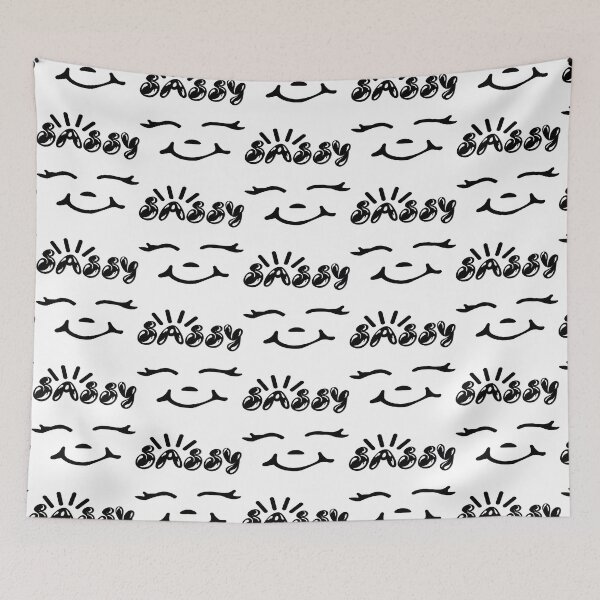 SASSY SASSY
SASSY SASSY SASSY
SASSY SASSY
SASSY SASSY SASSY
SASSY SASSY
SASSY SASSY SASSY
SASSY SASSY
SASSY SASSY SASSY